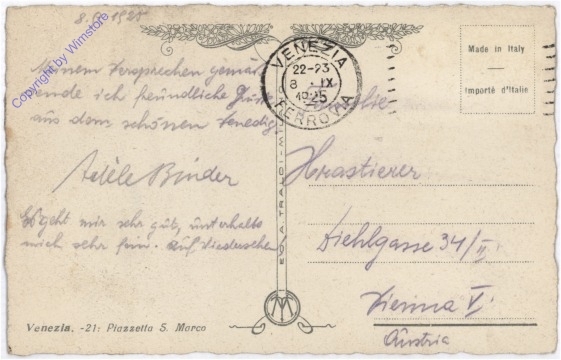 8. 9. 1925
Meinem Versprechen gemäß
sende ich freundliche Grüße
aus dem schönen Venedig
Adele Binder
Es geht mir sehr gut, unterhalte
mich sehr fein. Auf Wiedersehen
VENEZIA
22-23
8 IX
1925
FERROVIA
Made in Italy
Importé d'Italie
Hrastierer
Diehlgasse 34/II
Vienna V.
Austria
Venezia. -21: Piazzetta S. Marco
Copyright by Wimstore